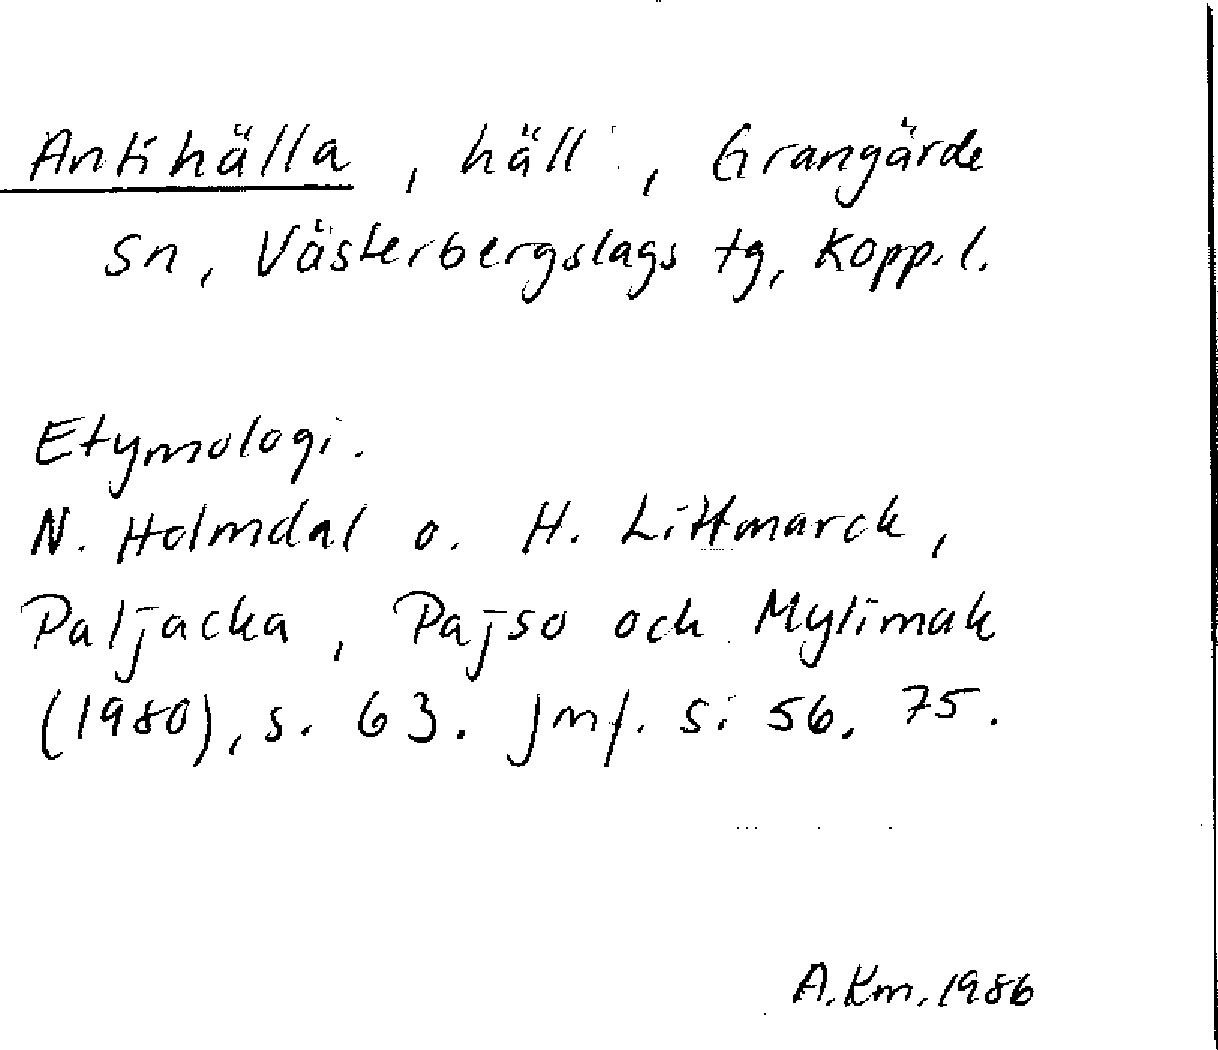 Antihälla, häll, Grangärde
sn, Västerbergslags tg, Kopp. l.
Etymologi.
N. Holmdal o. H. Littmarck,
Paljacka, Pajso och Mylimak
(1980), s. 63. Jmf. s. 56, 75.
A. Km. 1986